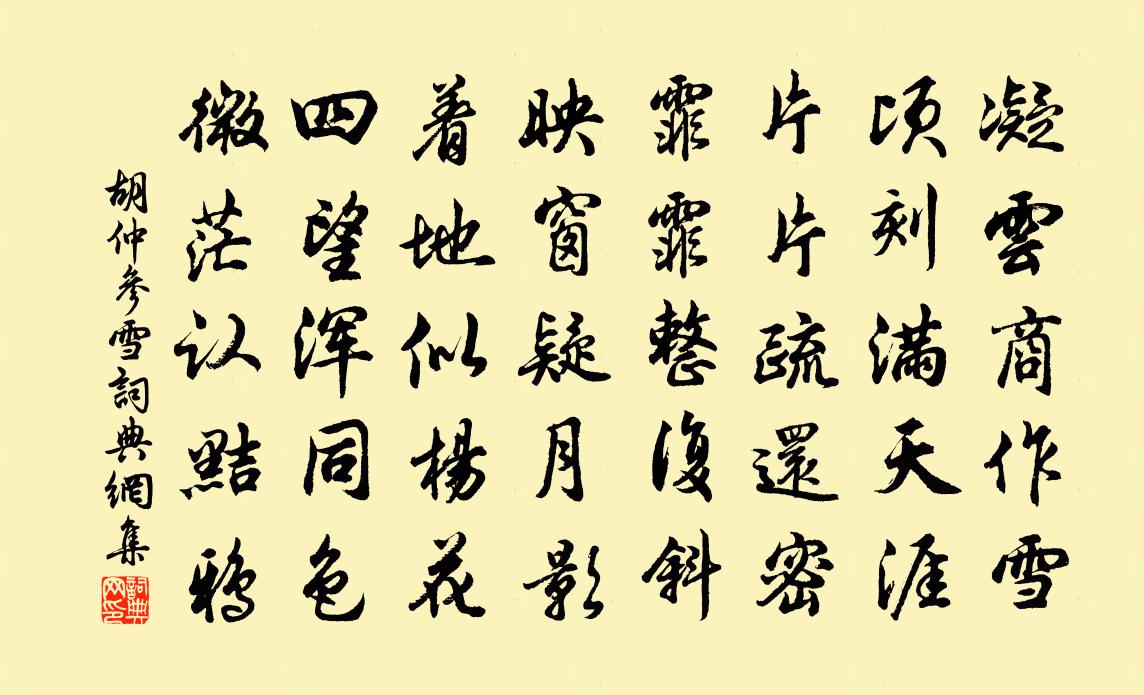 凝雲商作雪
頃刻满天涯
片片疏還密
霏霏整復斜
映窗疑月影
着地似楊花
四望浑同色
微茫认點鴉
胡仲參雪詞典網集
詞典网印